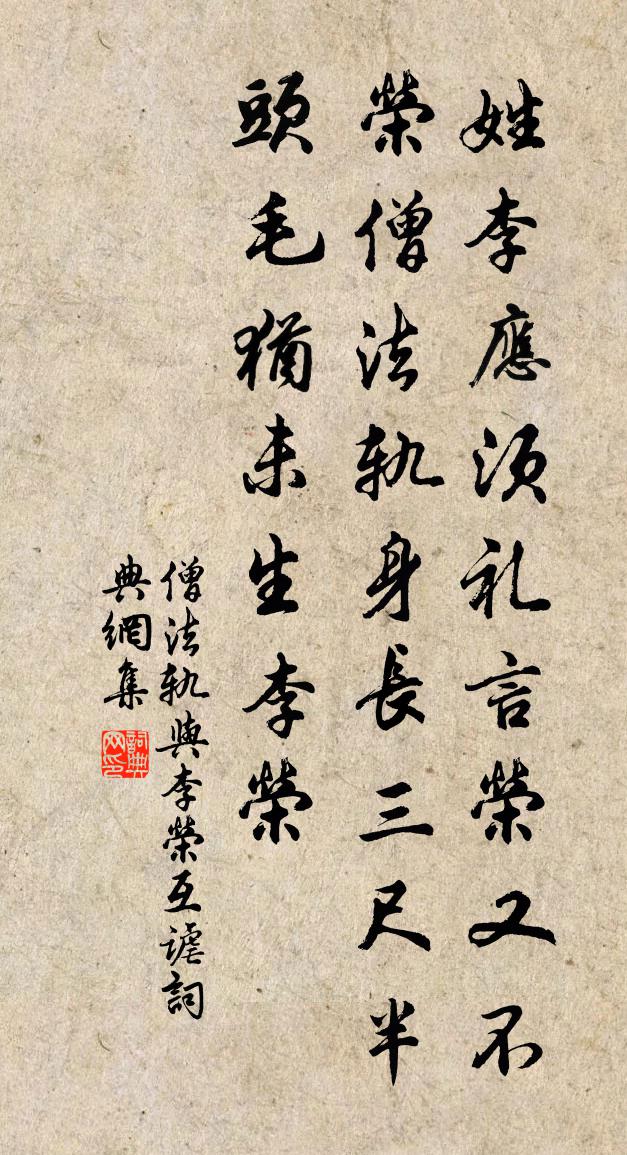 姓李應須礼言榮又不
榮僧法軌身長三尺半
頭毛猶未生李榮
僧法軌與李榮互謔詞
典網集
詞典
网印